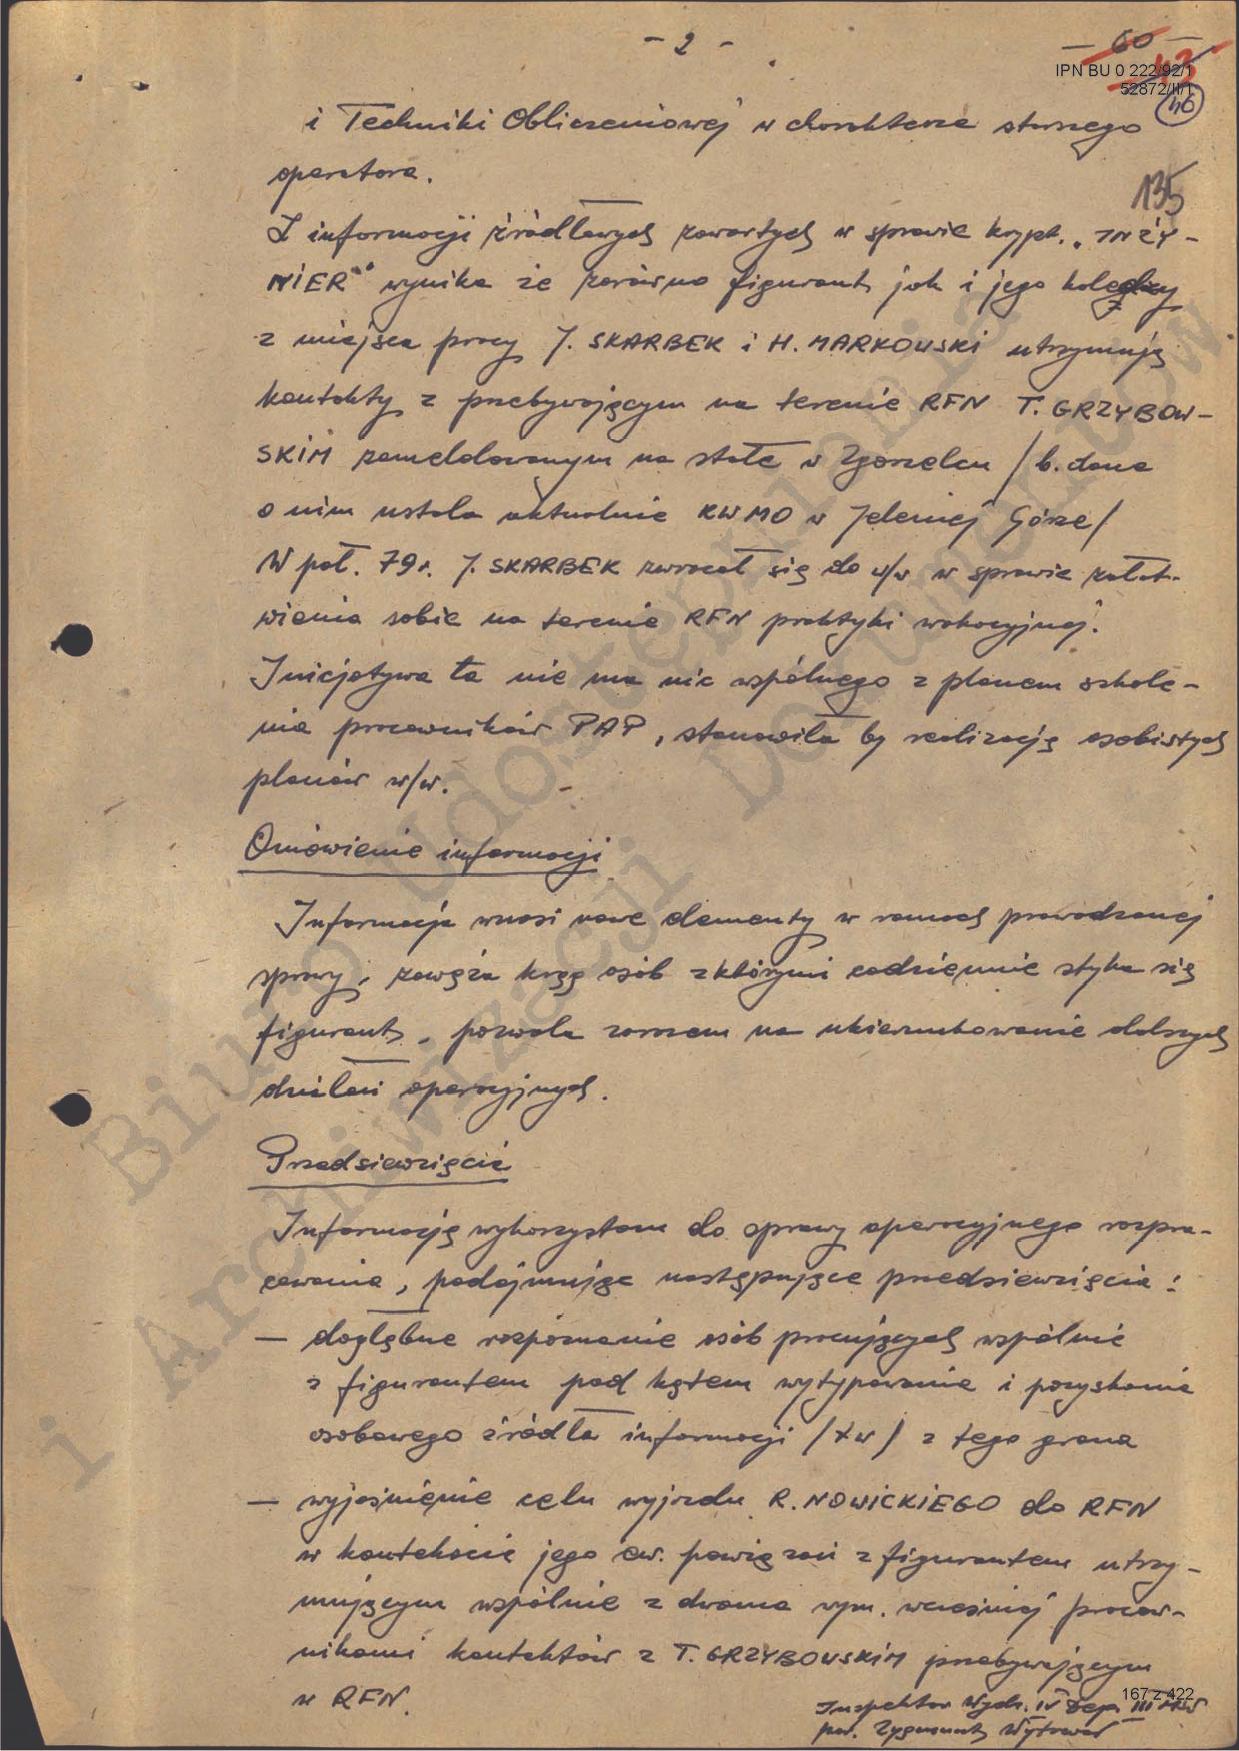 - 2 -
- 60 -
43
IPN BU 0 222/92/1
52872/II/1
46
i Techniki Obliczeniowej w charakterze starszego
operatora.
135
Z informacji źródłowych zawartych w sprawie krypt. "INŻY-
NIER" wynika że zarówno figurant jak i jego koledzy
z miejsca pracy J. SKARBEK i H. MARKOWSKI utrzymują
kontakty z przebywającym na terenie RFN T. GRZYBOW-
SKIM zameldowanym na stałe w Zgorzelcu /b. dane
o nim ustala aktualnie KWMO w Jeleniej Górze/
W poł. 79r. J. SKARBEK zwracał się do w/w w sprawie załat-
wienia sobie na terenie RFN praktyki wakacyjnej.
Inicjatywa ta nie ma nic wspólnego z planem szkole-
nia pracowników PAP, stanowiła by realizację osobistych
planów w/w. -
Omówienie informacji
Informacja wnosi nowe elementy w ramach prowadzonej
sprawy, zawęża krąg osób z którymi codziennie styka się
figurant, pozwala zarazem na ukierunkowanie dalszych
działań operacyjnych.
Przedsięwzięcie
Informację wykorzystam do sprawy operacyjnego rozpra-
cowania, podejmując następujące przedsięwzięcia:
- dogłębne rozpoznanie osób pracujących wspólnie
z figurantem pod kątem wytypowania i pozyskania
osobowego źródła informacji /tw/ z tego grona
- wyjaśnienie celu wyjazdu R. NOWICKIEGO do RFN
w kontekście jego ew. powiązań z figurantem utrzy-
mującym wspólnie z dwoma wym. wcześniej pracow-
nikami kontaktów z T. GRZYBOWSKIM przebywającym
w RFN.
167 z 422
Inspektor Wydz. IV Dep. III MSW
por. Zygmunt
Biuro Udostępniania
i Archiwizacji Dokumentów